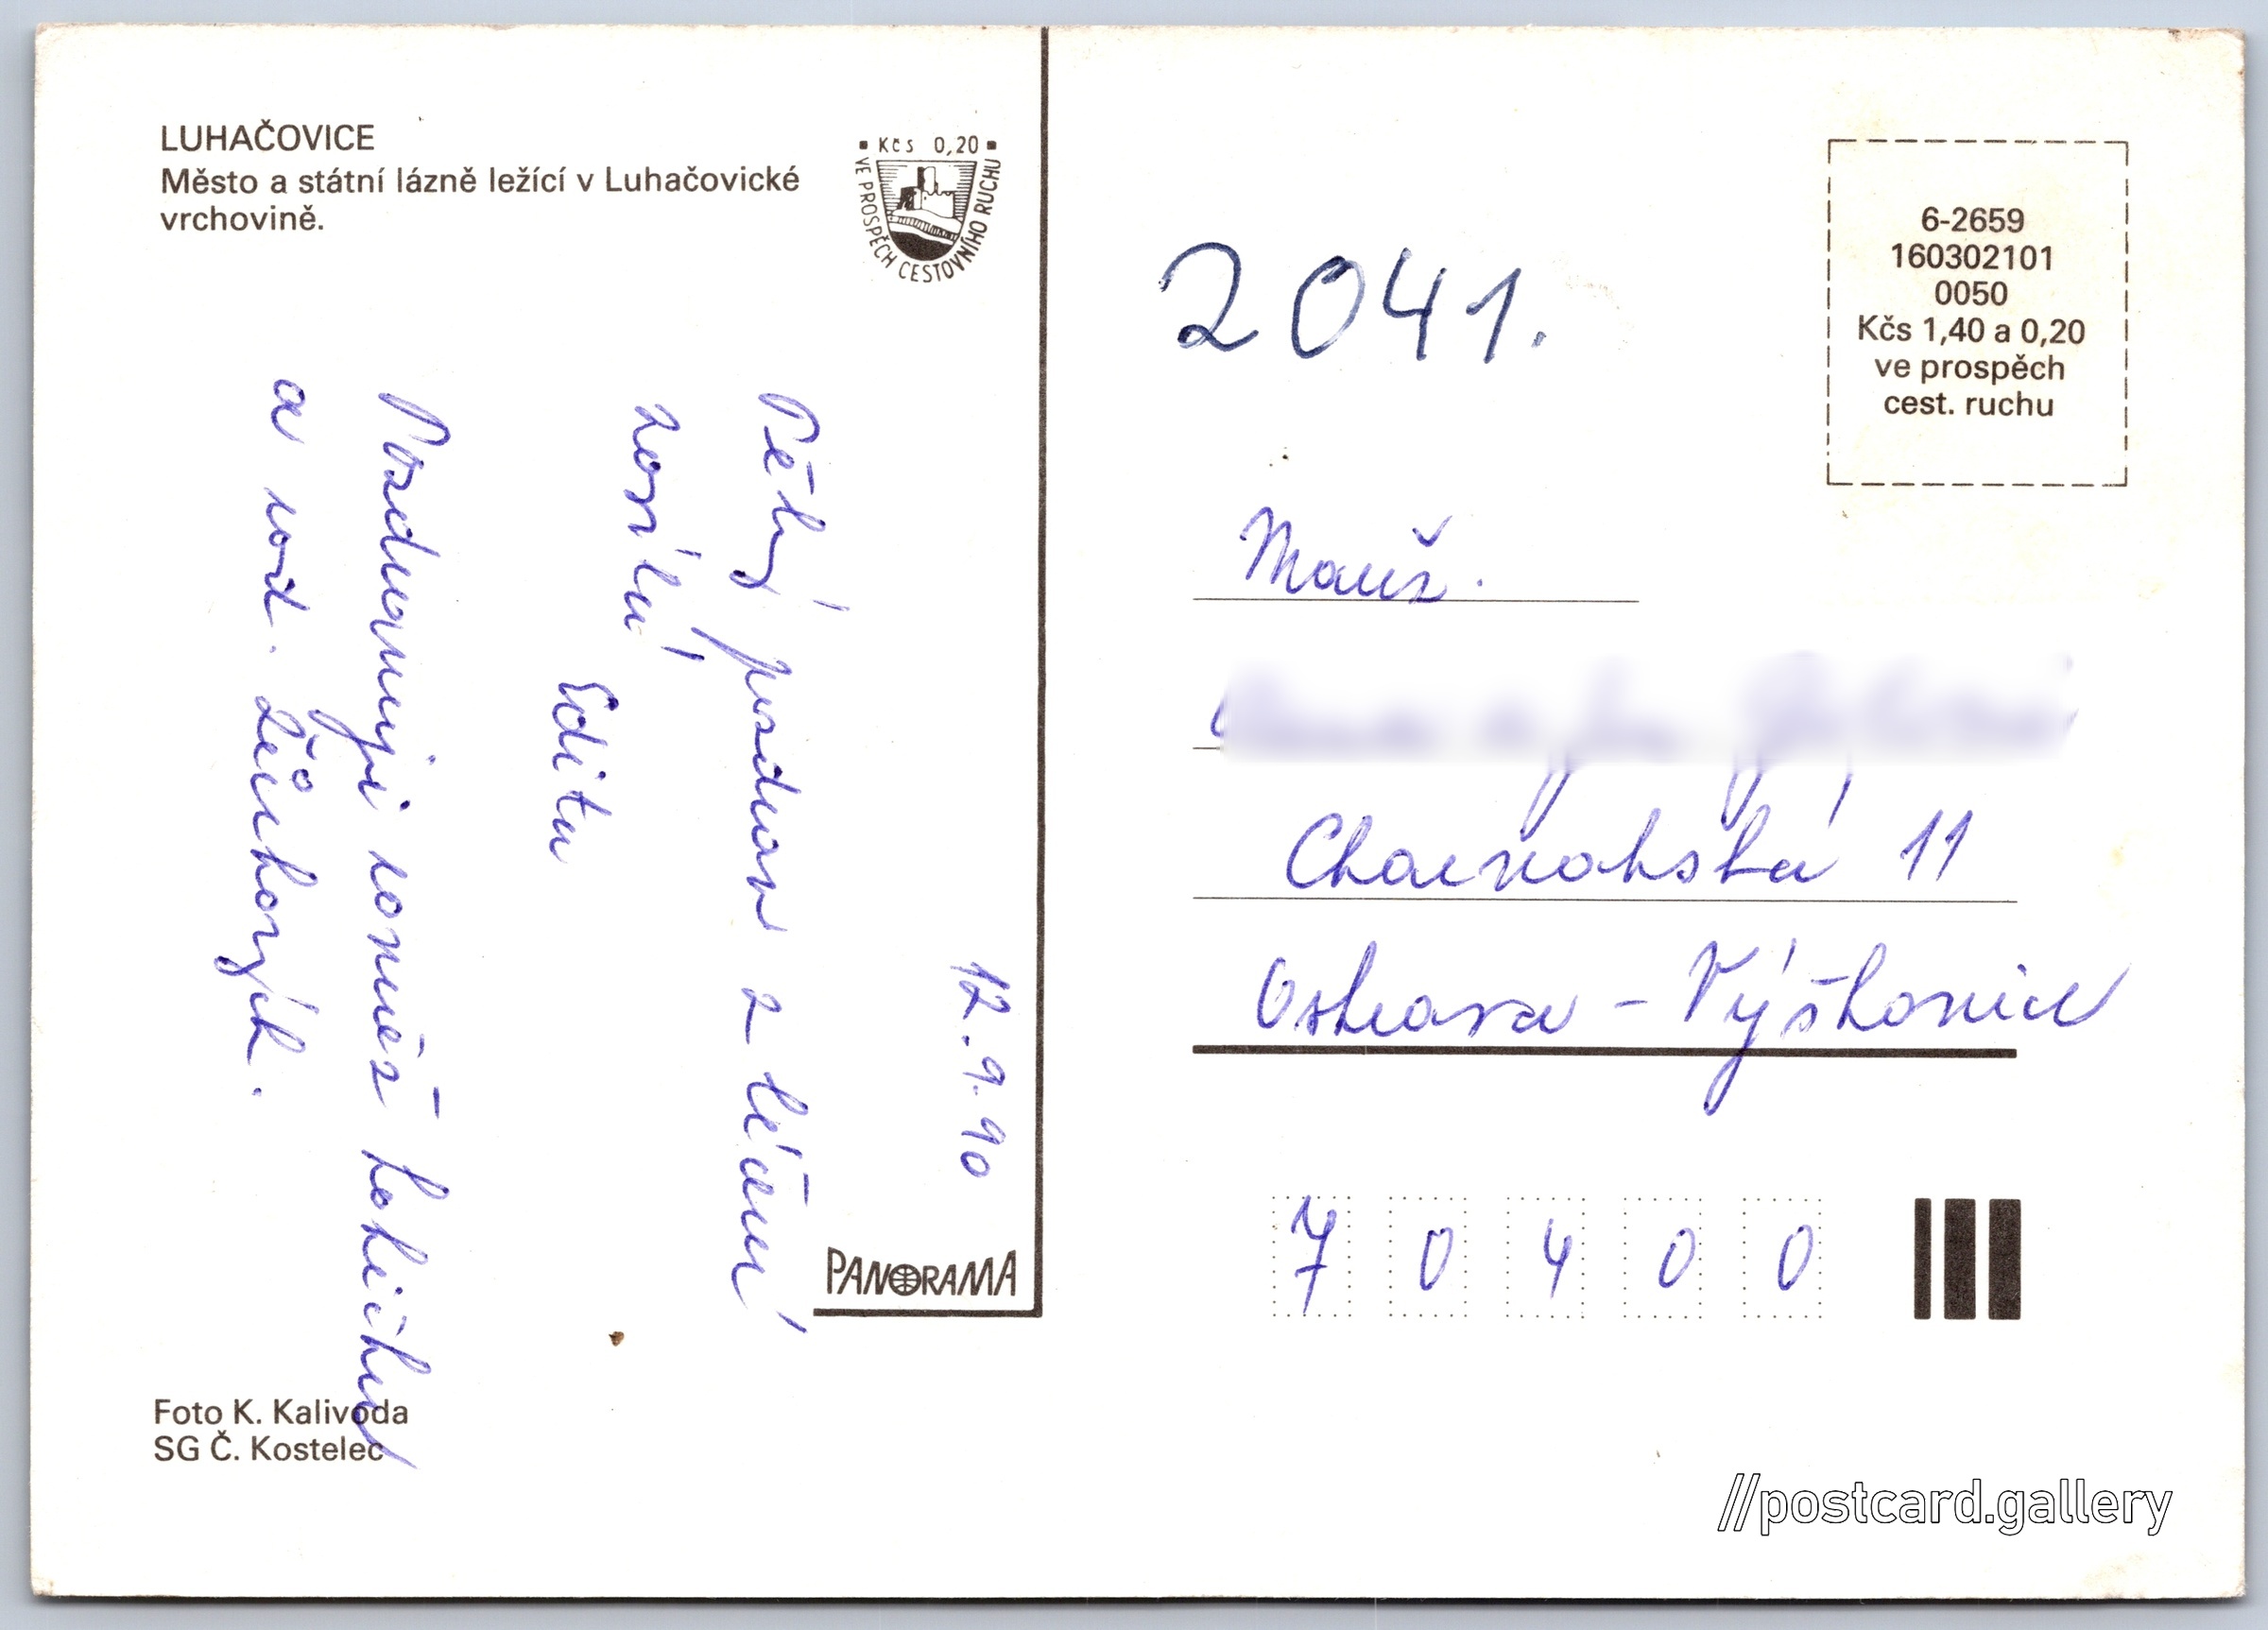 LUHAČOVICE
Město a státní lázně ležící v Luhačovické
vrchovině.
■ Kčs 0,20 ■
VE PROSPĚCH CESTOVNÍHO RUCHU
12. 9. 90
Pěkný pozdrav z léčení
zasílá
Edita
Pozdravuji rovněž
a rod.
PANORAMA
Foto K. Kalivoda
SG Č. Kostelec
2041.
6-2659
160302101
0050
Kčs 1,40 a 0,20
ve prospěch
cest. ruchu
Manž.
11
Ostrava - Výškovice
70400
//postcard.gallery